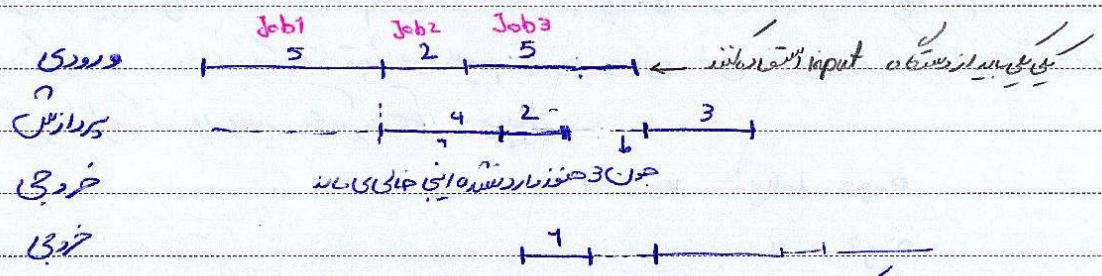 Job1 Job2 Job3
ورودی 5 2 5 ← یکی یکی باید از دستگاه input استفاده کنند
پردازش 4 2 3
خروجی چون 3 هنوز وارد نشده اینجا خالی می ماند
خروجی